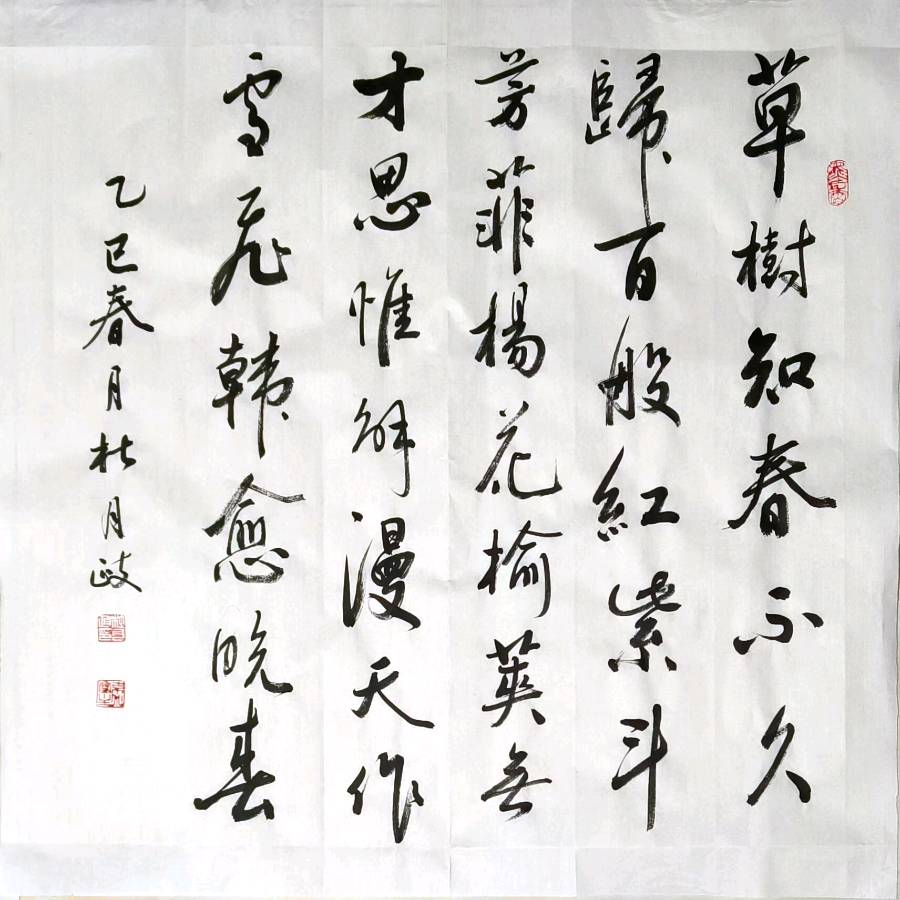 草樹知春不久
歸百般紅紫斗
芳菲楊花榆莢無
才思惟解漫天作
雪飛韓愈晚春
乙巳春月杜月歧